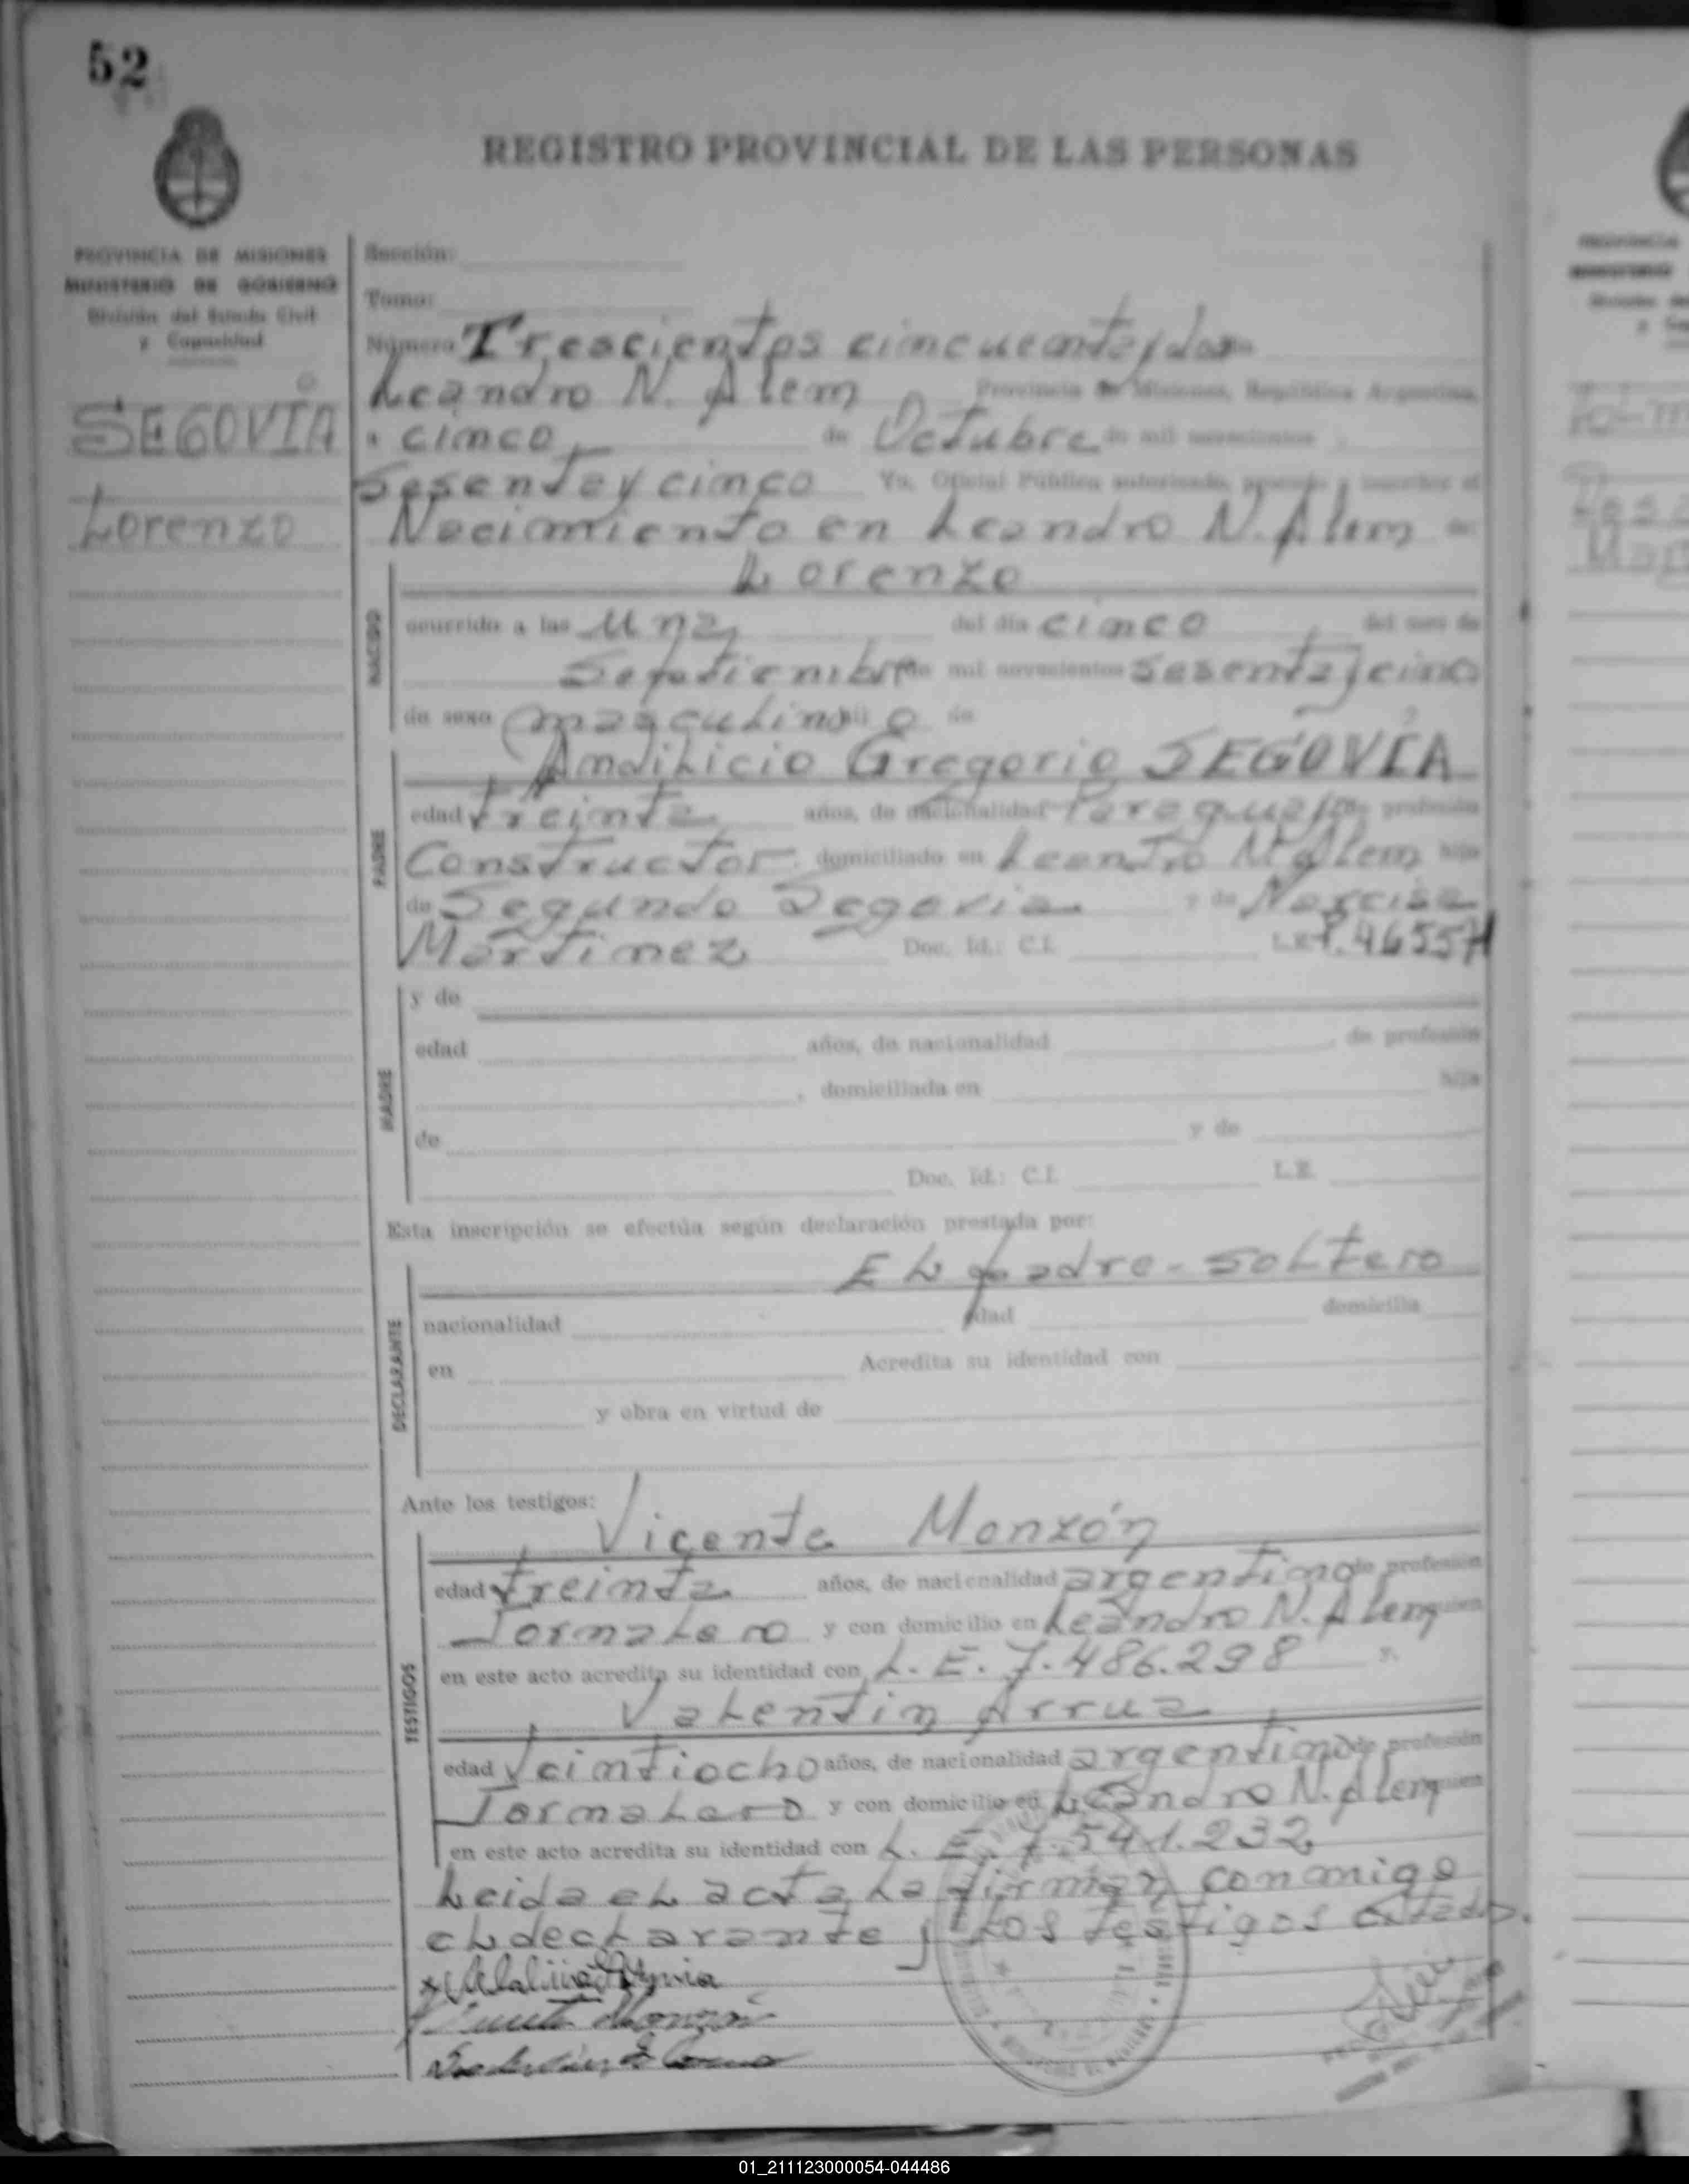 52
REGISTRO PROVINCIAL DE LAS PERSONAS
PROVINCIA DE MISIONES
MINISTERIO DE GOBIERNO
División del Estado Civil
y Capacidad
SEGOVIA
Lorenzo
Sección:
Tomo:
Número Trescientos cincuenta y dos
Leandro N. Alem Provincia de Misiones, República Argentina,
a cinco de Octubre de mil novecientos
Sesenta y cinco Yo, Oficial Público autorizado, procedo a inscribir el
Nacimiento en Leandro N. Alem de:
Lorenzo
NACIDO
ocurrido a las Una del día cinco del mes de
Septiembre de mil novecientos sesenta y cinco
de sexo masculino hijo de
Gregorio SEGOVIA
PADRE
edad treinta años, de nacionalidad Paraguayo de profesión
Constructor, domiciliado en Leandro N. Alem hijo
de Segundo Segovia y de Narcisa
Martinez Doc. Id.: C.I. L.E.
MADRE
y de
edad años, de nacionalidad , de profesión
, domiciliada en hija
de y de
Doc. Id.: C.I. L.E.
Esta inscripción se efectúa según declaración prestada por:
EL padre - soltero
DECLARANTE
nacionalidad edad domicilia
en Acredita su identidad con
y obra en virtud de
Ante los testigos:
Vicente Monzón
TESTIGOS
edad treinta años, de nacionalidad argentino de profesión
Jornalero y con domicilio en Leandro N. Alem quien
en este acto acredita su identidad con L. E. 7.486.298 y,
Valentin Arrua
edad Veintiocho años, de nacionalidad argentino de profesión
Jornalero y con domicilio en Leandro N. Alem quien
en este acto acredita su identidad con L. E. 7.541.232
Leida el acta la firman conmigo
el declarante y los testigos citados.
01_211123000054-044486